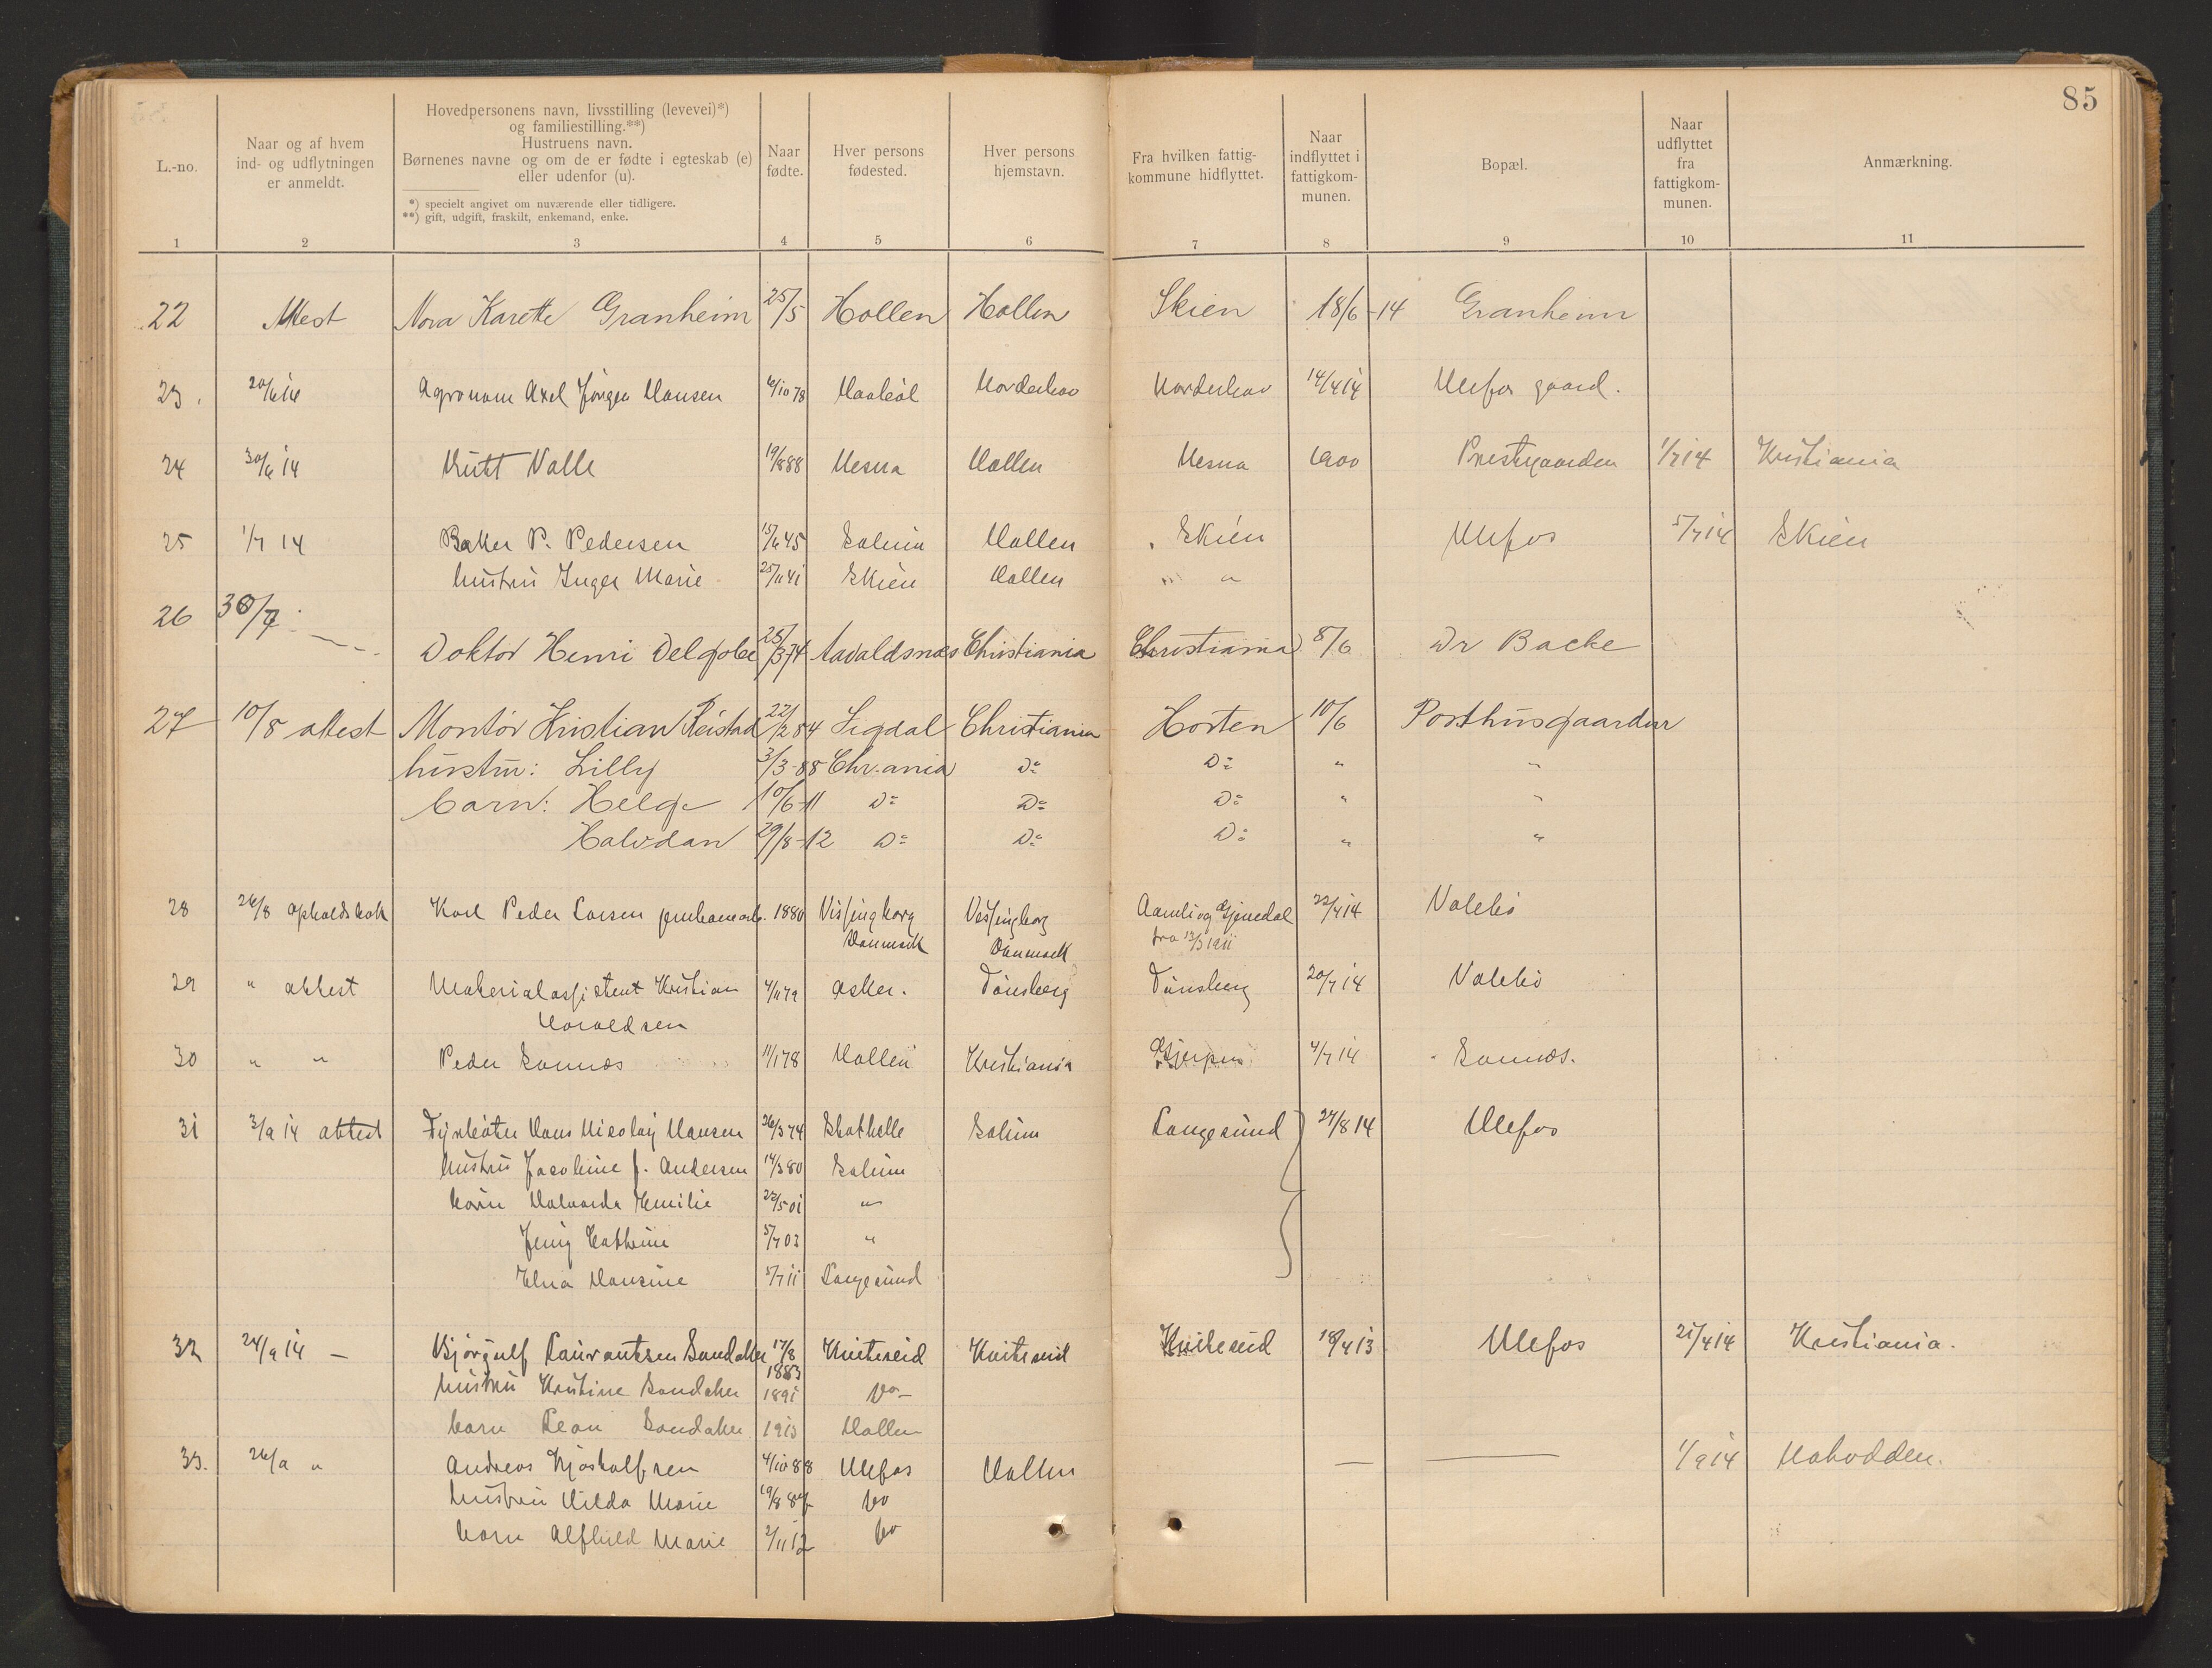 85
L.-no.
Naar og af hvem
ind- og udflytningen
er anmeldt.
Hovedpersonens navn, livsstilling (levevei)*)
og familiestilling.**)
Hustruens navn.
Børnenes navne og om de er fødte i egteskab (e)
eller udenfor (u).
*) specielt angivet om nuværende eller tidligere.
**) gift, udgift, fraskilt, enkemand, enke.
Naar
fødte.
Hver persons
fødested.
Hver persons
hjemstavn.
Fra hvilken fattig-
kommune hidflyttet.
Naar
indflyttet i
fattigkom-
munen.
Bopæl.
Naar
udflyttet
fra
fattigkom-
munen.
Anmærkning.
1 2 3 4 5 6 7 8 9 10 11
22 Attest Nora Karette Granheim 25/5 Hollen Hollen Skien 18/6-14 Granheim
23. 20/6 14 Agronom Axel Jörgen Hansen 6/10 78 Norderhov Norderhov 14/4 14 Ulefos gaard.
24 30/6 14 Rutt Valle 19/8 88 Mesna Hollen Mesna 1900 Prestegaarden 1/7 14 Kristiania
25 1/7 14 Baker P. Pedersen 15/6 45 Solum Hollen Skien Ulefos 5/7 14 Skien
hustru Inger Marie 25/11 41 Skien Hollen " "
26 30/7 Doktor Henri Delgobe 25/3 74 Avaldsnæs Christiania Christiania 8/6 Dr Backe
27 10/8 attest Montör Kristian Reistad 22/2 84 Sigdal Christiania Horten 10/6 Posthusgaarden
hustru: Lilly 3/3-88 Chr.ania Do Do " "
barn: Helge 10/6-11 Do Do Do " "
Halvdan 29/8-12 Do Do Do " "
28 26/8 opholdsbok Karl Peder Larsen jernbanearb. 1880 Vissingborg Vissingborg Aamli og Gjerstad 22/4 14 Valebö
Danmark Danmark fra 12/5 1911
29 " attest Materialassistent Kristian 4/11 79 Asker. Tönsberg Tönsberg 20/7 14 Valebö
Haraldsen
30 " " Peder Sannæs 11/1 78 Hollen Kristiania Gjerpen 4/7 14 Sannæs.
31 3/9 14 attest Fyrböter Hans Nicolay Hansen 26/3 74 Stathelle Solum Langesund 27/8 14 Ulefos
hustru Jacobine f. Andersen 14/3 80 Solum
barn Halvarda Emilie 22/5 01 "
Jenny Cathrine 5/7 03 "
Elna Hansine 5/7 11 Langesund
32 24/9 14 — Björgulf Laurantsen Sundaker 17/8 Kviteseid Kviteseid Kviteseid 18/4 13 Ulefos 21/4 14 Kristiania.
1883
hustru Kristine Sondaker 1891 Do —
barn Leon Sondaker 1913 Hollen
33. 26/9 " Andreas Kjöstolfsen 4/10 88 Ulefos Hollen — — 1/9 14 Notodden.
hustru Hilda Marie 19/8 87 Do
barn Alfhild Marie 2/11 12 Do